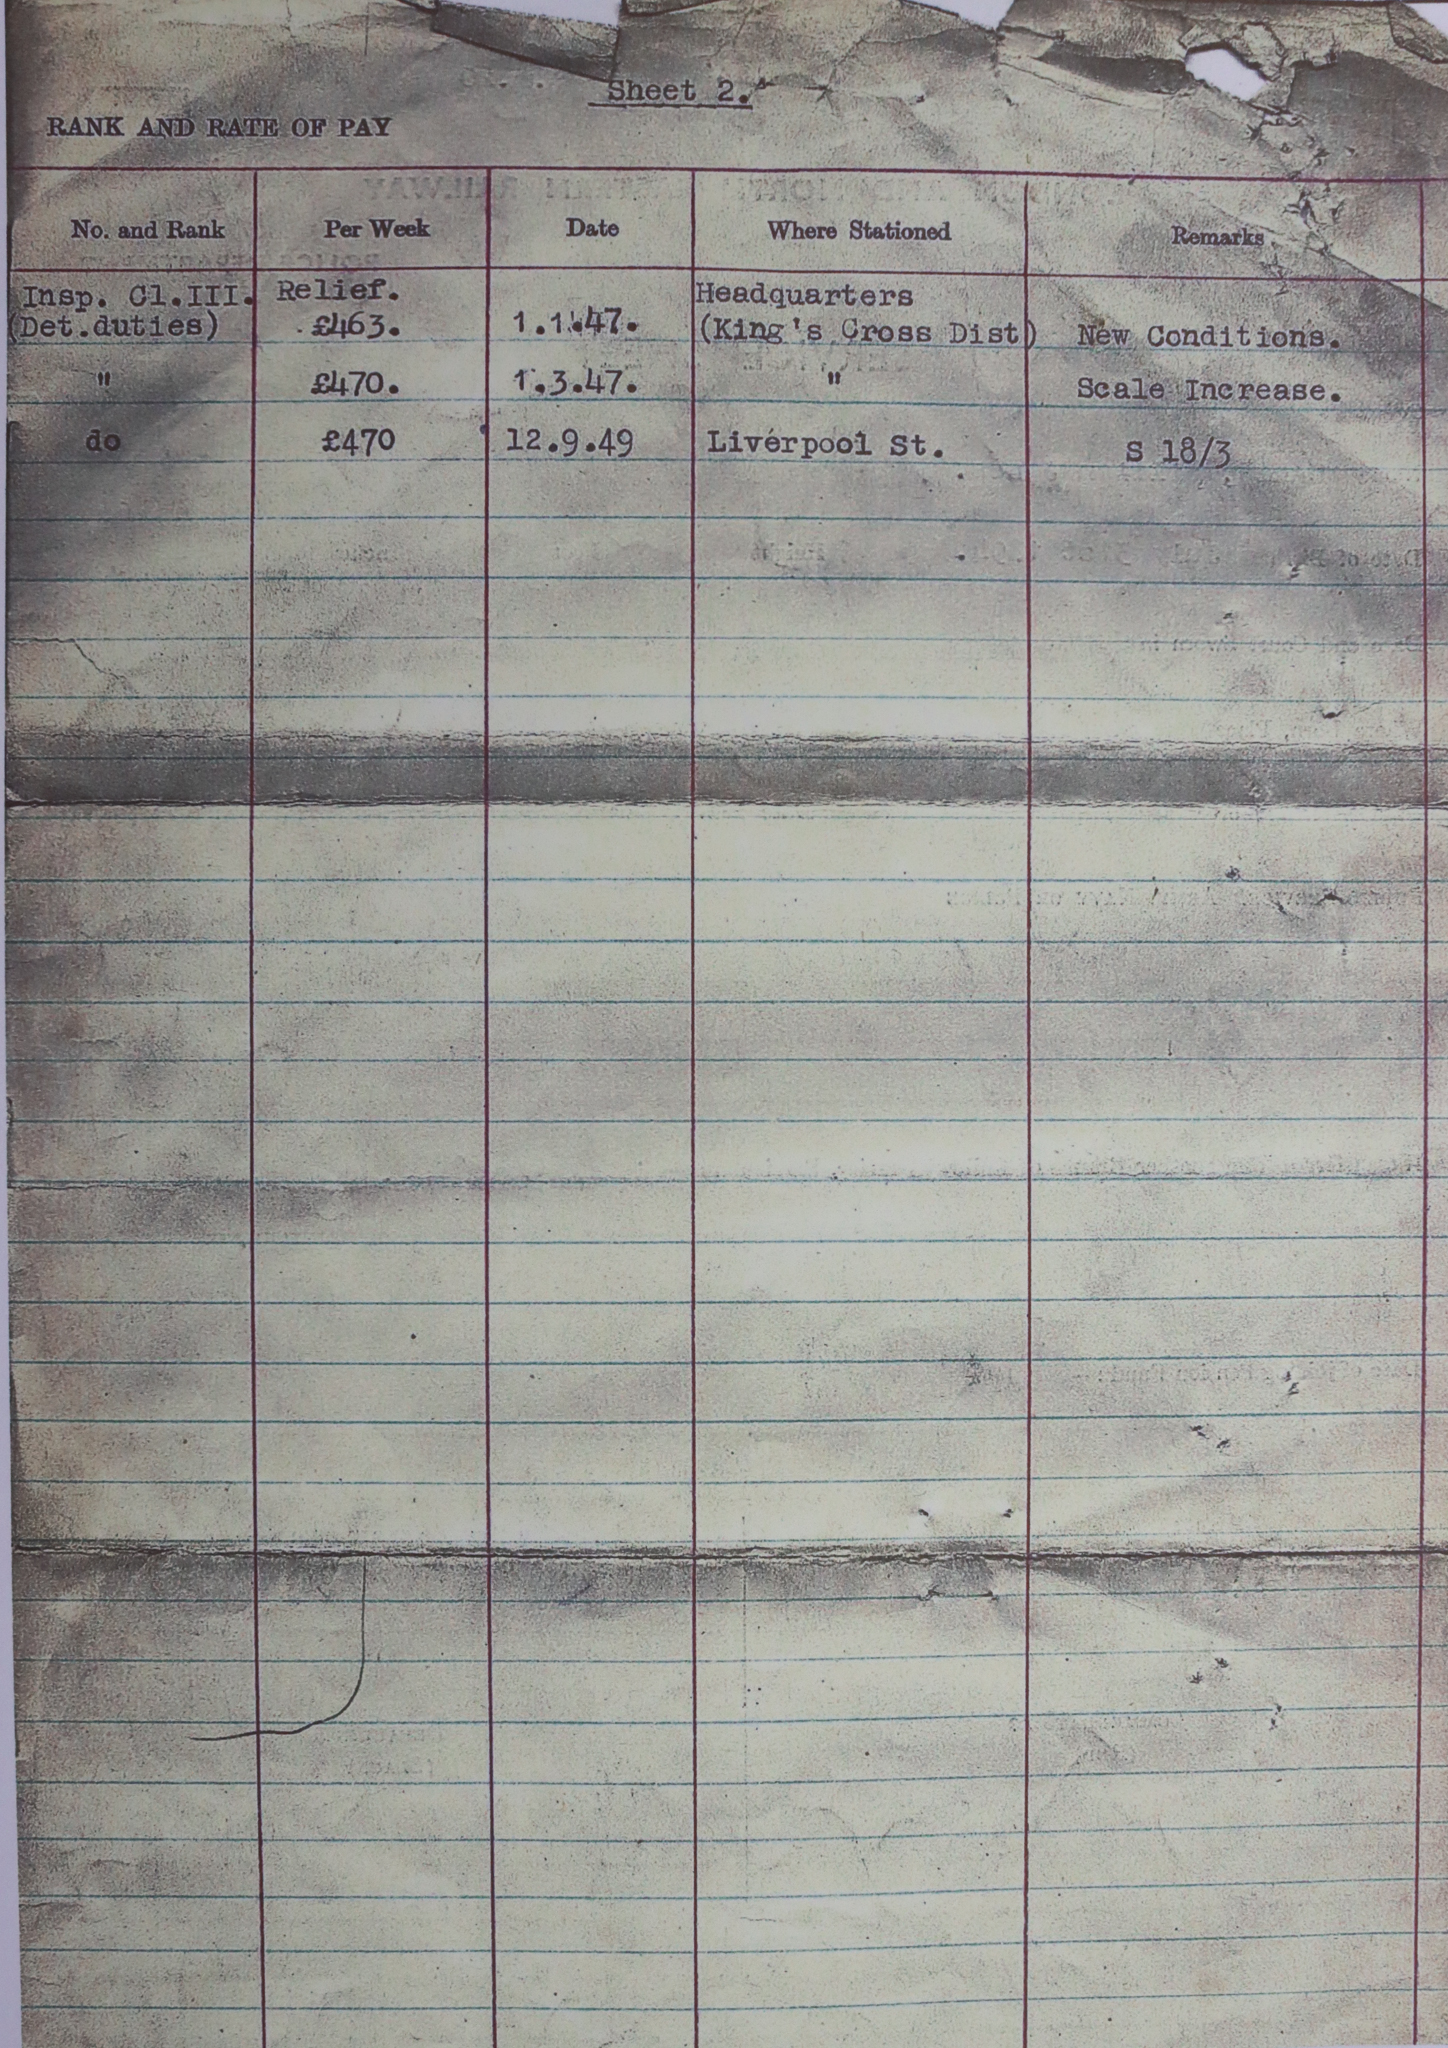 Sheet 2.
RANK AND RATE OF PAY
No. and Rank Per Week Date Where Stationed Remarks
Insp. Cl.III. Relief. Headquarters
(Det.duties) £463. 1.1.47. (King's Cross Dist) New Conditions.
" £470. 1.3.47. " Scale Increase.
do £470 12.9.49 Liverpool St. S 18/3